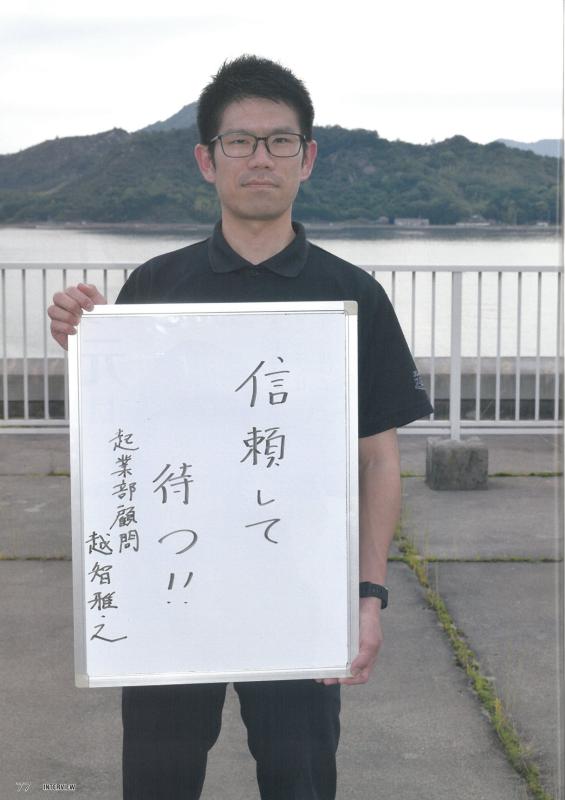 信頼して
待つ!!
起業部顧問
越智雅之
77 INTERVIEW